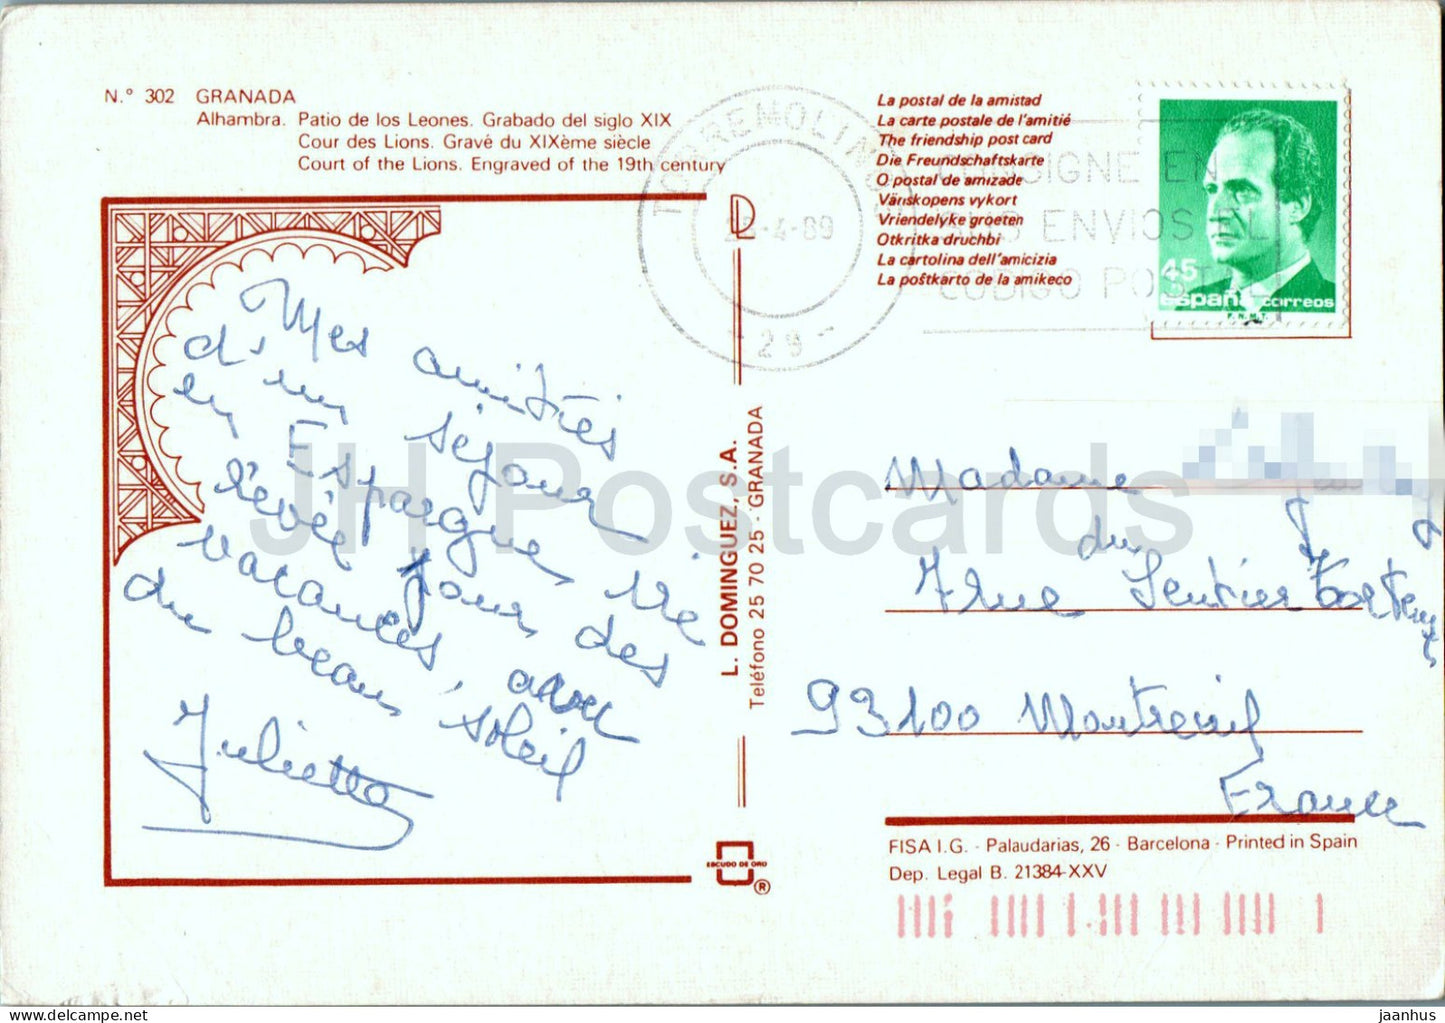 N.° 302 GRANADA
Alhambra. Patio de los Leones. Grabado del siglo XIX
Cour des Lions. Gravé du XIXème siècle
Court of the Lions. Engraved of the 19th century
La postal de la amistad
La carte postale de l'amitié
The friendship post card
Die Freundschaftskarte
O postal de amizade
Vänskopens vykort
Vriendelyke groeten
Otkritka druchbi
La cartolina dell'amicizia
La poŝtkarto de la amikeco
TORREMOLINOS
4-89
- 29 -
CONSIGNE EN
SUS ENVIOS EL
CODIGO POSTAL
45
España correos
F.N.M.T.
Mes amitiés
d'un séjour
en Espagne,
rêvé pour des
vacances, avec
du beau soleil
Julietta
L. DOMINGUEZ, S.A.
Teléfono 25 70 25 - GRANADA
Madame
7 rue du Sentier
93100 Montreuil
France
ESCUDO DE ORO
®
FISA I.G. - Palaudarias, 26 - Barcelona - Printed in Spain
Dep. Legal B. 21384-XXV
JH Postcards
jaanhus